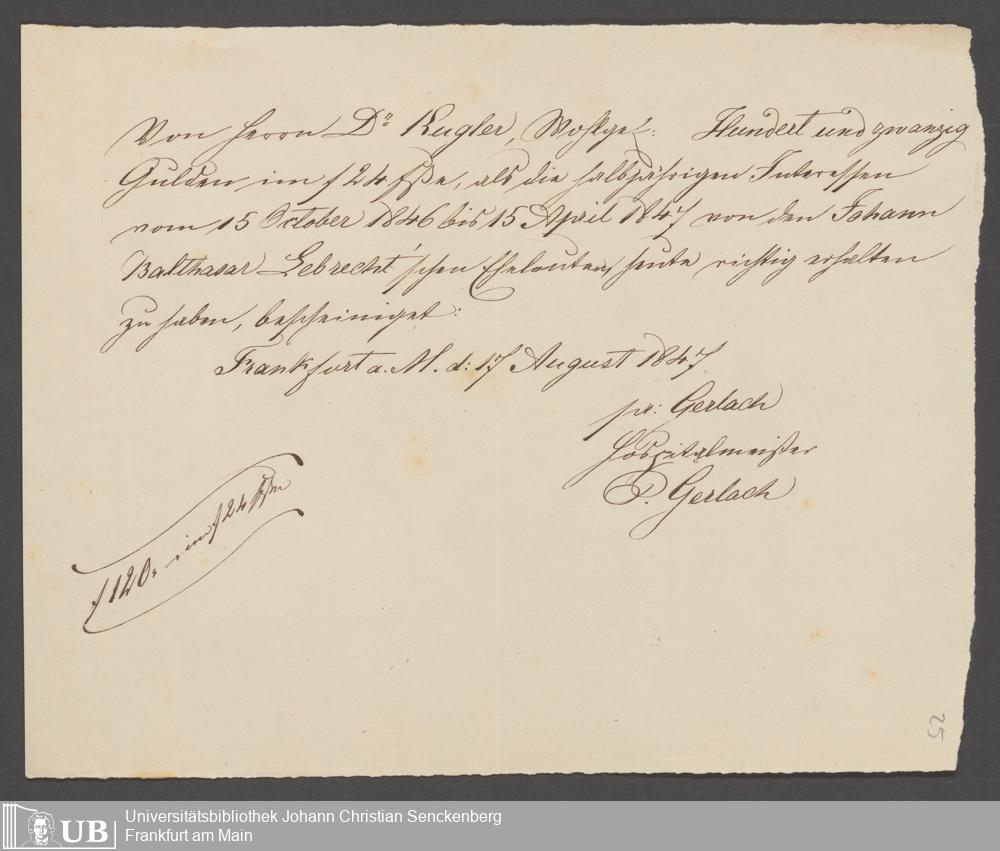 Von Herrn Dr Kugler, Wohlgeb: Hundert und zwanzig
Gulden im f 24 fße, als die halbjährigen Interessen
vom 15 October 1846 bis 15 April 1847 von den Johann
Balthasar Lebrecht'schen Eheleuten, heute richtig erhalten
zu haben, bescheiniget:
Frankfurt a. M. d: 17 August 1847.
Gerlach
Hospitalmeister
P. Gerlach
f 120, im f 24 fße
25
UB
Universitätsbibliothek Johann Christian Senckenberg
Frankfurt am Main